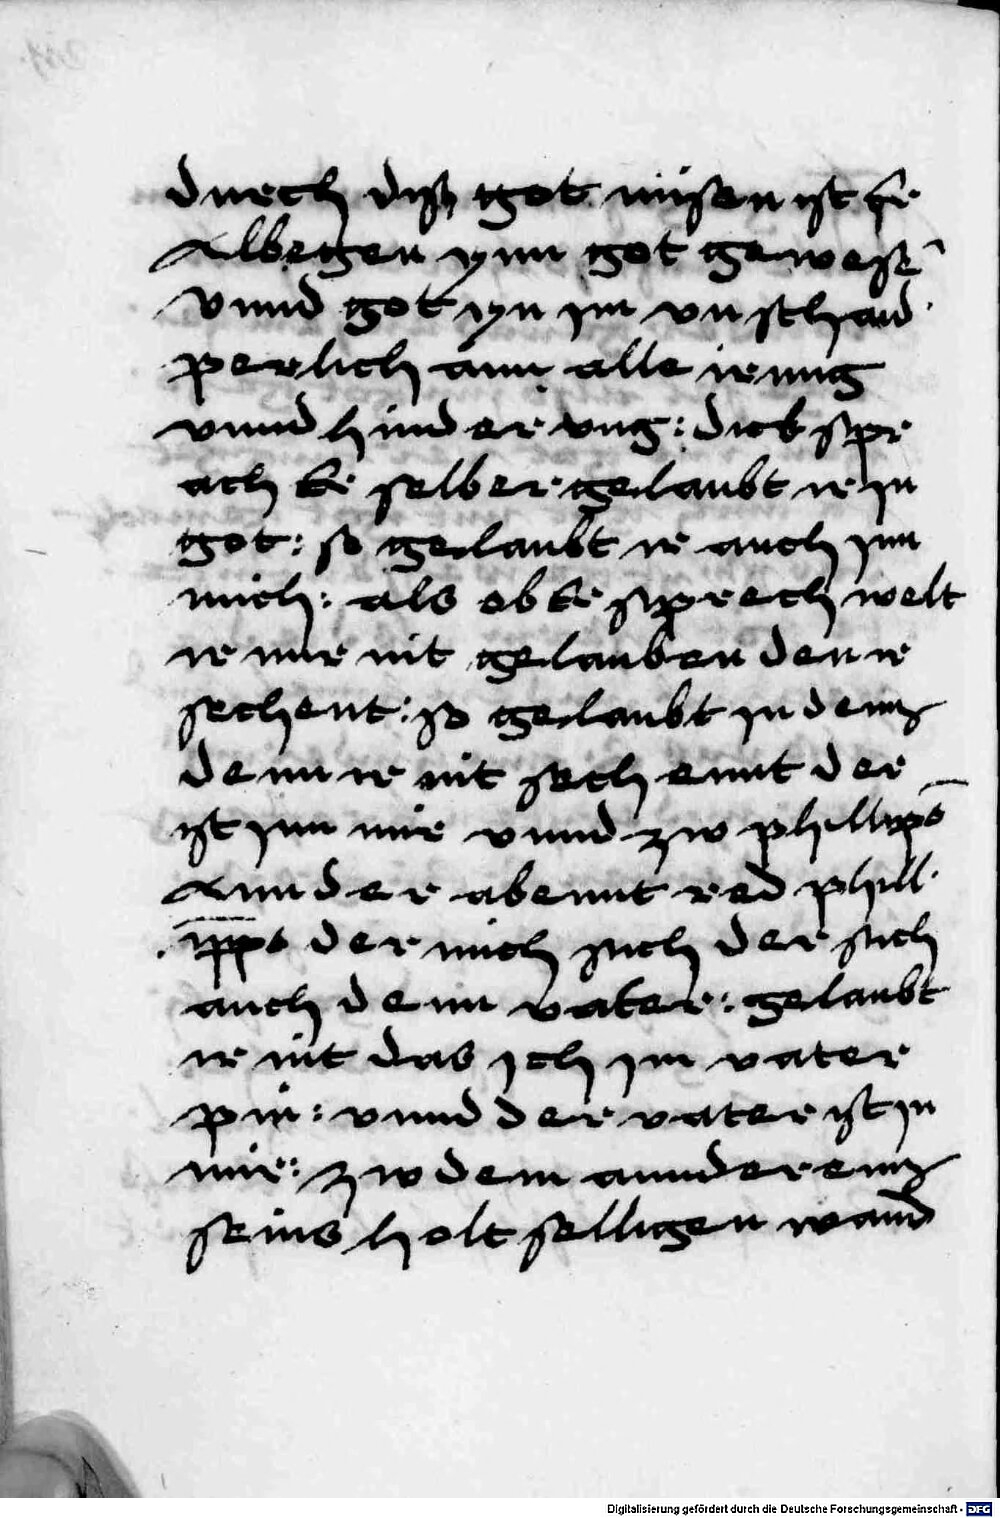 durch diß got müsen ist er
Albegen ynn got gewesen̄
vnnd got yn im vnschaid
perlich ann alle irnng
vnnd hinderung: dick spr
ach er selber gelaubt ir in
got: so gelaubt ir auch inn
mich: als ob er sprech welt
ir mir nit gelauben den ir
sechent: so gelaubt in dem
denn ir nit sechennt der
ist inn mir vnnd zw phillip̄o
Ann der abennt red phill
ip̄po der mich sich der sich
auch denn vater: gelaubt
ir nit das ich im vater
pin: vnnd der vater ist in
mir: zw dem annderem
seins holtselligen wand
Digitalisierung gefördert durch die Deutsche Forschungsgemeinschaft - DFG